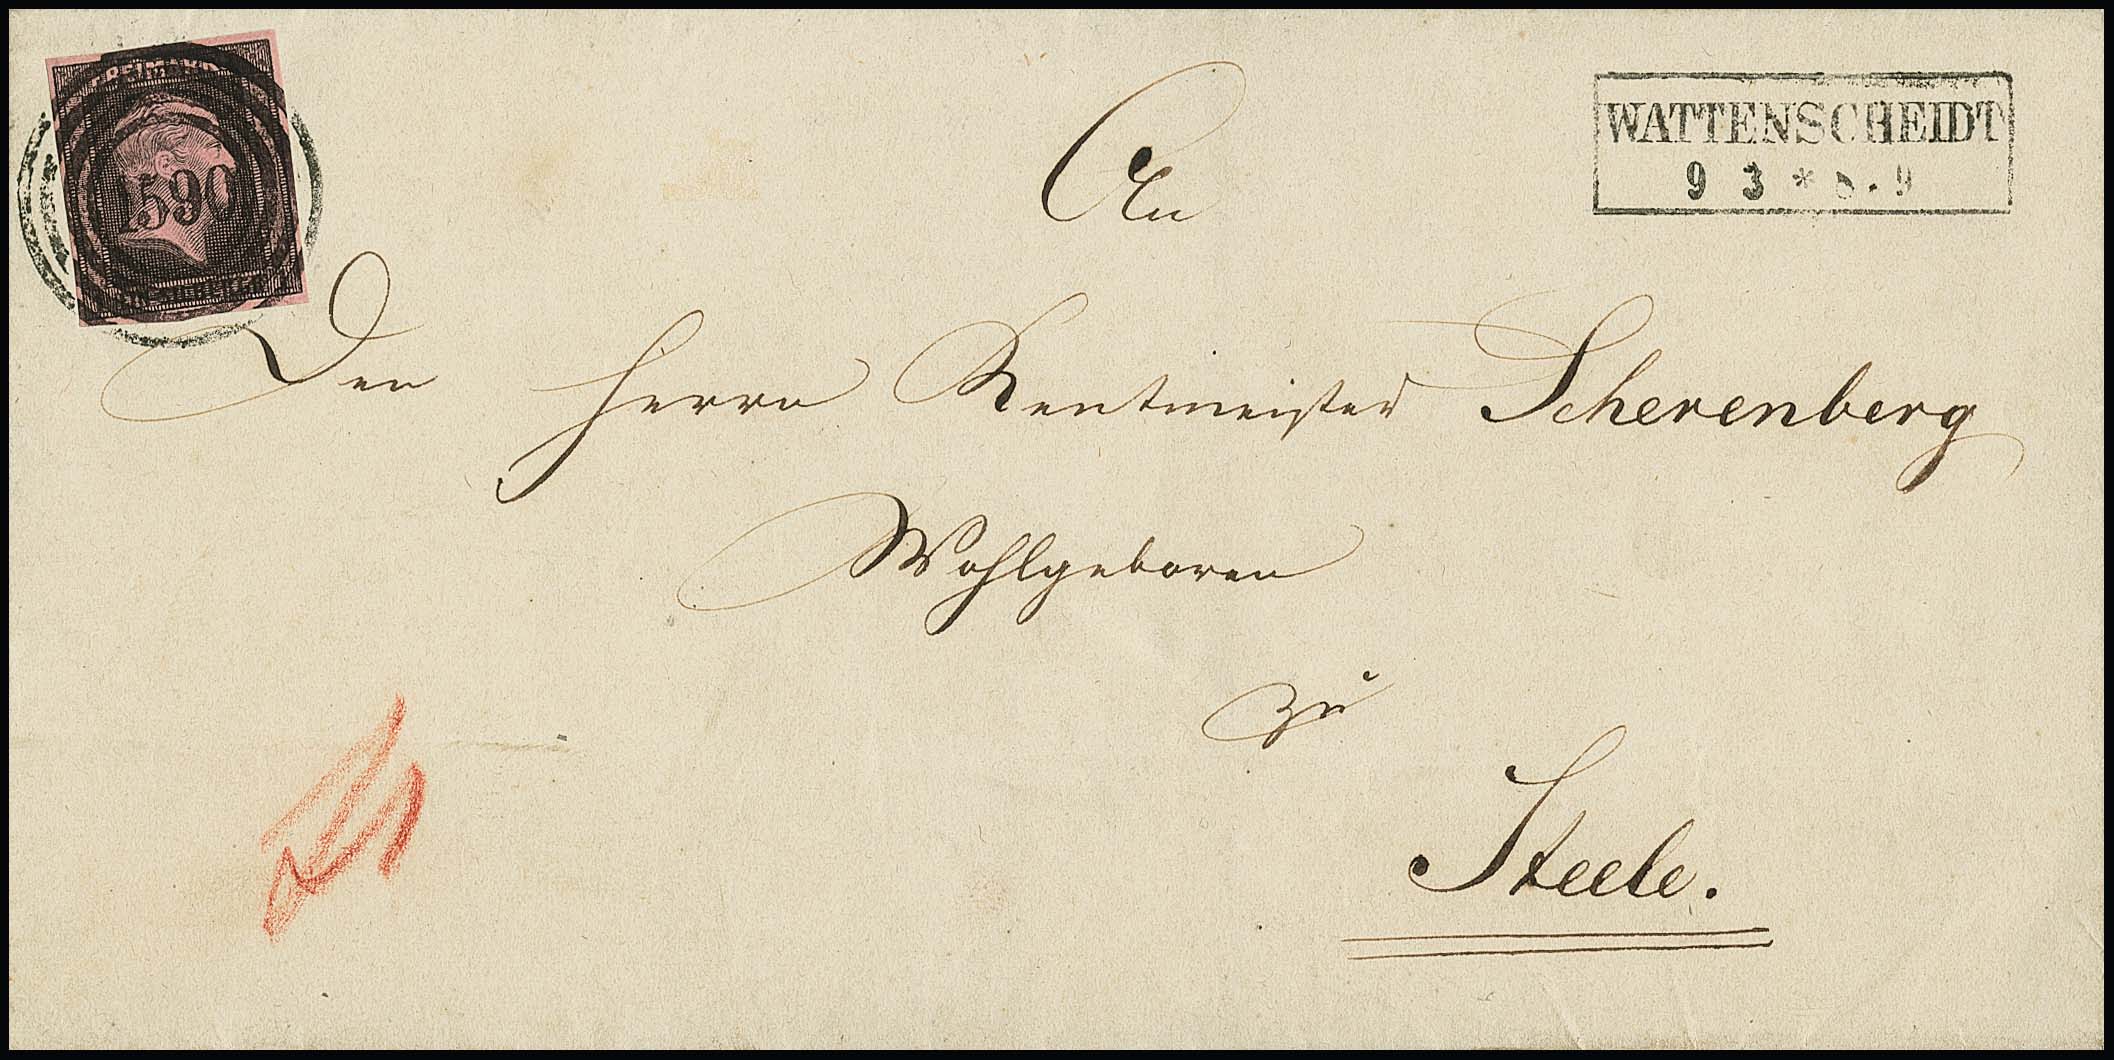 FREIMARKE
1590
EIN SILBERGR.
WATTENSCHEIDT
9 3 * 8-9
An
Den Herrn Rentmeister Scherenberg
Wohlgeboren
zu
Steele.